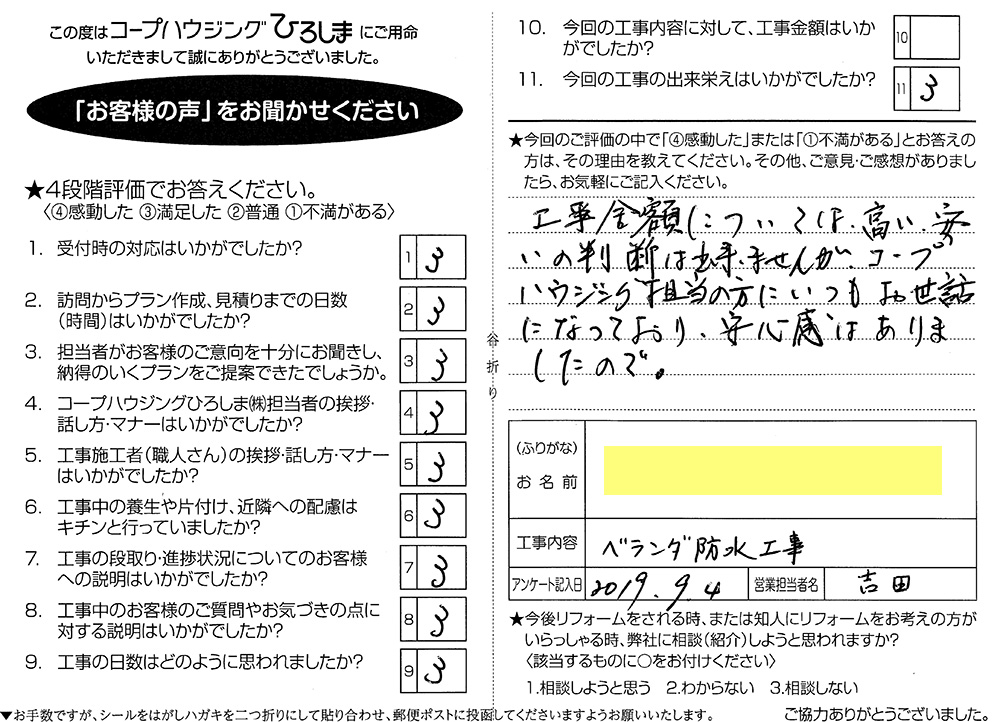 この度はコープハウジングひろしまにご用命
いただきまして誠にありがとうございました。
「お客様の声」をお聞かせください
★4段階評価でお答えください。
〈④感動した ③満足した ②普通 ①不満がある〉
1. 受付時の対応はいかがでしたか? 1 3
2. 訪問からプラン作成、見積りまでの日数
(時間)はいかがでしたか? 2 3
3. 担当者がお客様のご意向を十分にお聞きし、
納得のいくプランをご提案できたでしょうか。 3 3
4. コープハウジングひろしま㈱担当者の挨拶・
話し方・マナーはいかがでしたか? 4 3
5. 工事施工者(職人さん)の挨拶・話し方・マナー
はいかがでしたか? 5 3
6. 工事中の養生や片付け、近隣への配慮は
キチンと行っていましたか? 6 3
7. 工事の段取り・進捗状況についてのお客様
への説明はいかがでしたか? 7 3
8. 工事中のお客様のご質問やお気づきの点に
対する説明はいかがでしたか? 8 3
9. 工事の日数はどのように思われましたか? 9 3
▼お手数ですが、シールをはがしハガキを二つ折りにして貼り合わせ、郵便ポストに投函してくださいますようお願いいたします。
谷折り
10. 今回の工事内容に対して、工事金額はいか
がでしたか? 10
11. 今回の工事の出来栄えはいかがでしたか? 11 3
★今回のご評価の中で「④感動した」または「①不満がある」とお答えの
方は、その理由を教えてください。その他、ご意見・ご感想がありまし
たら、お気軽にご記入ください。
工事金額については、高い、安
いの判断は出来ませんが、コープ
ハウジング担当の方にいつもお世話
になっており、安心感はありま
したので。
(ふりがな)
お名前
工事内容 ベランダ防水工事
アンケート記入日 2019.9.4 営業担当者名 吉田
★今後リフォームをされる時、または知人にリフォームをお考えの方が
いらっしゃる時、弊社に相談(紹介)しようと思われますか?
〈該当するものに○をお付けください〉
1.相談しようと思う 2.わからない 3.相談しない
ご協力ありがとうございました。